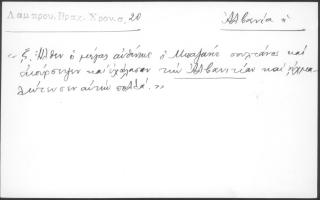 Λάμπρου, Βραχ. Χρονικ, 20 Ἀλβανία ἡ
« ξ. Ἦλθεν ὁ μέγας αὐθέντης ὁ Μπαγιαζὴτ σουλτάνος καὶ
ἐκούρσευσεν καὶ ἐχάλασεν τὴν Ἀλβανιτίαν καὶ ᾐχμα-
λώτευσεν αὐτὴν πολλά. »